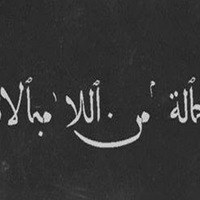 حالة من اللا مبالا